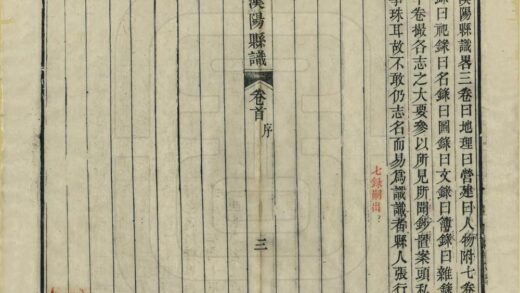 漢陽縣識畧三卷曰地理曰營建曰人物附七卷
錄曰祀錄曰名錄曰圖錄曰文錄曰簿錄曰雜錄
十卷撮各志之大要參以所見所聞鈔置案頭私
事珠耳故不敢仍志名而易爲識識者縣人張行
七錄嗣出
漢陽縣識
卷首
序
三